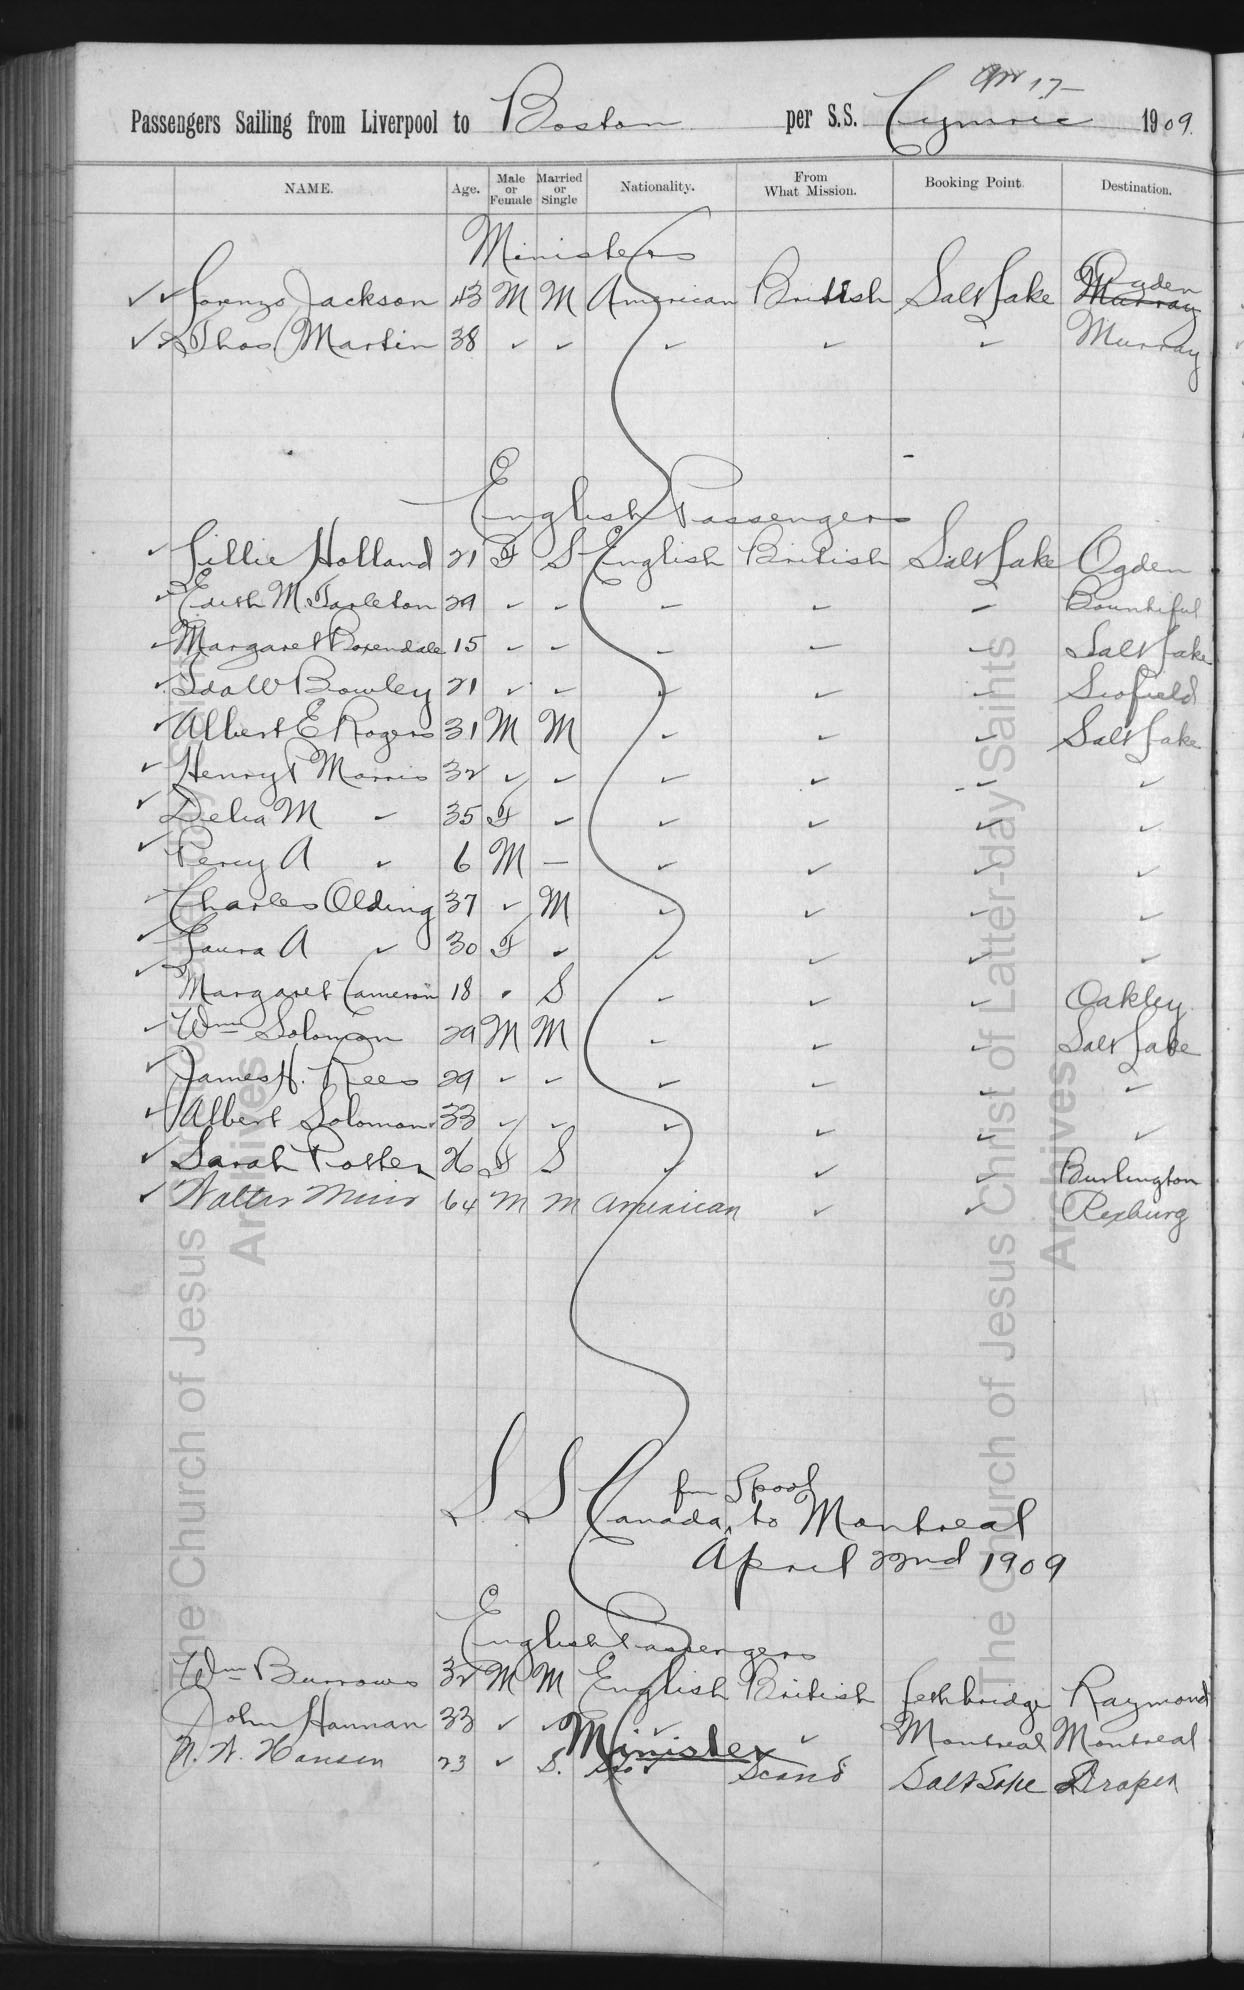 Apr 17
Passengers Sailing from Liverpool to Boston per S.S. Cymric 1909.
NAME. Age. Male or Female Married or Single Nationality. From What Mission. Booking Point. Destination.
Ministers
✓✓ Lorenzo Jackson 43 M M American British Salt Lake Murray Ogden
✓✓ Thos Martin 38 ✓ ✓ ✓ ✓ ✓ Murray
English Passengers
✓ Lillie Holland 21 F S English British Salt Lake Ogden
✓ Edith M. Tarleton 29 ✓ ✓ ✓ ✓ ✓ Bountiful
✓ Margaret Boxendale 15 ✓ ✓ ✓ ✓ ✓ Salt Lake
✓ Ida W Bowley 21 ✓ ✓ ✓ ✓ ✓ Scofield
✓ Albert E Rogers 31 M M ✓ ✓ ✓ Salt Lake
✓ Henry P Morris 32 ✓ ✓ ✓ ✓ ✓ ✓
✓ Delia M ✓ 35 F ✓ ✓ ✓ ✓ ✓
✓ Percy A ✓ 6 M — ✓ ✓ ✓ ✓
✓ Charles Olding 37 ✓ M ✓ ✓ ✓ ✓
✓ Laura A ✓ 30 F ✓ ✓ ✓ ✓ ✓
✓ Margaret Cameron 18 ✓ S ✓ ✓ ✓ Oakley.
✓ Wm Solomon 29 M M ✓ ✓ ✓ Salt Lake
✓ James H. Rees 29 ✓ ✓ ✓ ✓ ✓ ✓
✓ Albert Solomon 33 ✓ ✓ ✓ ✓ ✓ ✓
✓ Sarah Potter 26 F S ✓ ✓ ✓ Burlington
✓ Walter Muir 64 M M American ✓ ✓ Rexburg
S S Canada, fm Lpool to Montreal
April 22nd 1909
English Passengers
Wm Burrows 32 M M English British Lethbridge Raymond
John Hannan 33 ✓ ✓ ✓ ✓ Montreal Montreal
Minister
N. W. Hansen 23 ✓ S. Scand Salt Lake Draper
The Church of Jesus Christ of Latter-day Saints
Archives
The Church of Jesus Christ of Latter-day Saints
Archives